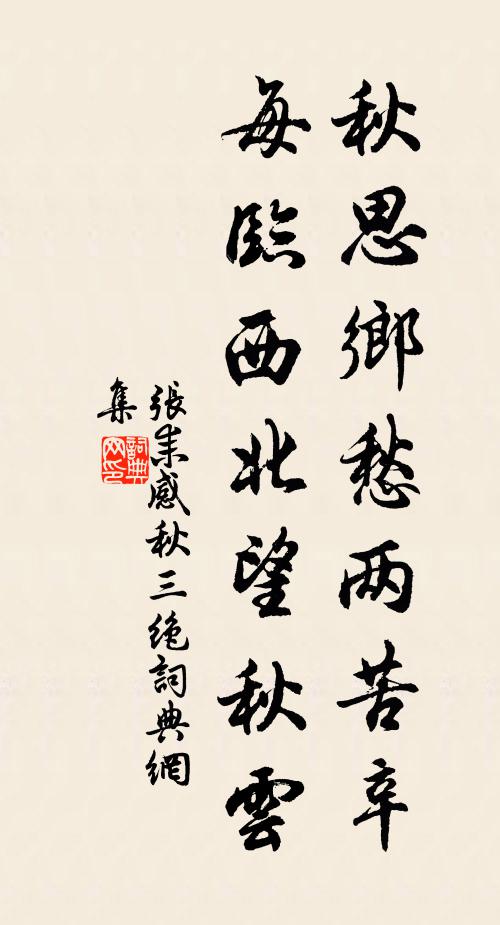 秋思鄉愁两苦辛
每臨西北望秋雲
張耒感秋三絶詞典網
集
詞典网印